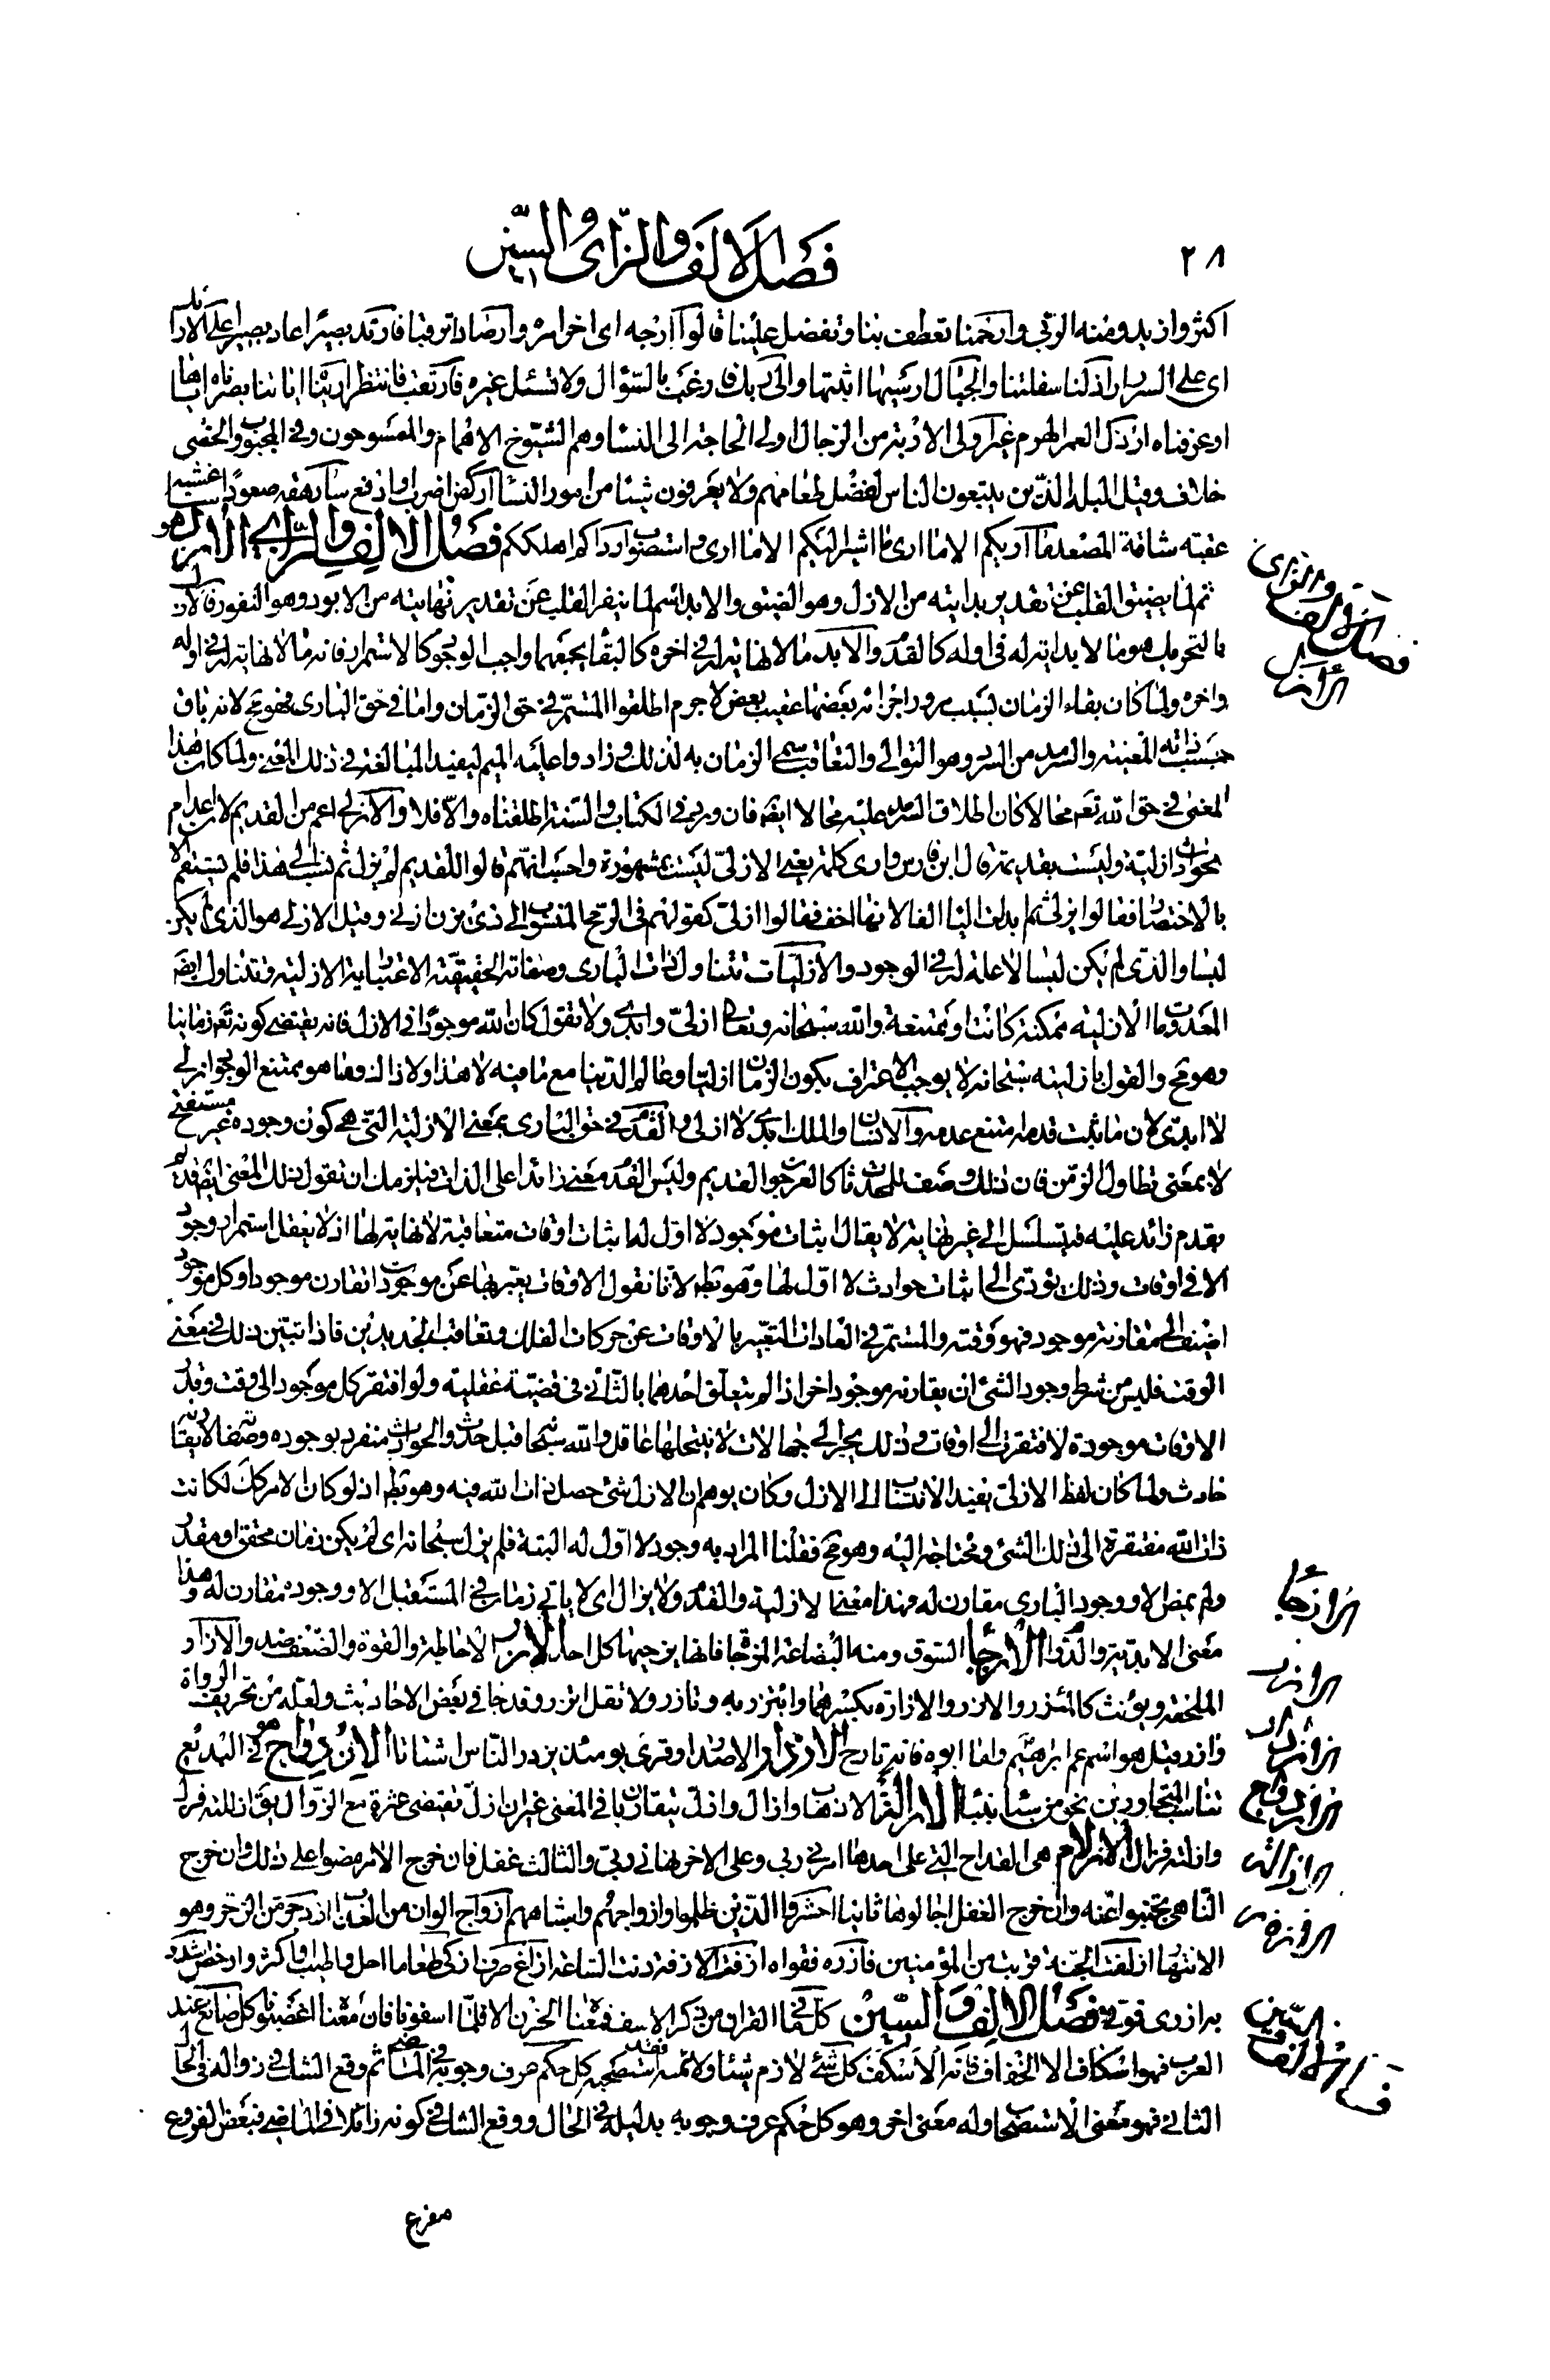 ٢٨
فصل الالف والزاى والسين
اكثر وازيد ومنه الربى وارحمنا تعطف بنا وتفضل علينا قالوا ارجه اى اخره وارصادا ترقبا فارتد بصيرا عاد بصيرا على الارائك
اى على السرر اراذلنا سفلتنا والجبال ارسيها اثبتها والى ربك فارغب بالسؤال ولا تسئل غيره فارتقب فانتظر ارينا اياتنا بصرناه اياها
او عرفناه ارذل العمر الهرم غير اولى الاربة من الرجال اولى الحاجة الى النساء وهم الشيوخ الاهمام والممسوحون وفى المجبوب والخصى
خلاف وقيل البله الذين يتبعون الناس لفضل طعامهم ولا يعرفون شيئا من امور النساء اركض اضرب اوادفع سارهقه صعودا ساغشيه
عقبة شاقة المصعد ما اريكم الا ما ارى ما اشير اليكم الا ما ارى واستصوبه ارداكم اهلككم فصل الالف والزاى الازل هو
اسم لما يضيق القلب عن تقدير بدايته من الازل وهو الضيق والابد اسم لما ينفر القلب عن تقدير نهايته من الابود وهو النفور فالازل
بالتحريك هو ما لا بداية له فى اوله كالقدم والابد ما لا نهاية له فى اخره كالبقاء يجمعهما واجب الوجود كالاستمرار فانه ما لا نهاية له فى اوله
واخره ولما كان بقاء الزمان بسبب مرور اجزائه بعضها عقيب بعض لا جرم اطلقوا المستمر فى حق الزمان واما فى حق البارى فهو مح لانه باق
بحسب ذاته المعينة والسرمد من السرد وهو التوالى والتعاقب سمى الزمان به لذلك وزادوا عليه الميم ليفيد المبالغة فى ذلك المعنى ولما كان هذا
المعنى فى حق الله تعه محالا كان اطلاق السرمد عليه محالا ايضا فان ورد فى الكتاب والسنة اطلقناه والا فلا والازلى اعم من القديم لان اعدام
الحوادث ازلية وليست بقديمة قال ابن فارس وارى كلمة يعنى الازلى ليست بمشهورة واحسب انهم قالوا للقديم لم يزل ثم نسب الى هذا فلم يستقم الا
بالاختصار فقالوا يزلى ثم ابدلت الياء الفا لانها اخف فقالوا ازلى كقولهم فى الرمح المنسوب الى ذى يزن ازنى وقيل الازلى هو الذى لم يكن
ليسا والذى لم يكن ليسا لا علة له فى الوجود والازليات تتناول ذات البارى وصفاته الحقيقية الاعتبارية الازلية وتتناول ايضا
المعدومات الازلية ممكنة كانت او ممتنعة والله سبحانه وتعالى ازلى وابدى ولا تقول كان الله موجودا فى الازل فانه يقتضى كونه تعه زمانيا
وهو مح والقول بازليته سبحانه لا يوجب الاعتراف بكون الزمان ازليا وعالم الدنيا مع ما فيه لا هذا ولا ذاك وما هو ممتنع الوجود ازلى
لا ابدى لان ما ثبت قدمه امتنع عدمه والانسان والملك ابدى لا ازلى والقدم فى حق البارى بمعنى الازلية التى هى كون وجوده غير مستفتح
لا بمعنى تطاول الزمن فان ذلك وصف للمحدثات كالعرجون القديم وليس القدم معنى زائدا على الذات فيلزمك ان تقول ذلك المعنى ايضا قديم
بقدم زائد عليه فيتسلسل الى غير نهاية لا يقال اثبات موجود لا اول له اثبات اوقات متعاقبة لا نهاية لها اذ لا يعقل استمرار وجود
الا فى اوقات وذلك يؤدى الى اثبات حوادث لا اول لها وهو بط لانا نقول الاوقات يعبر بها عن موجودات تقارن موجودا وكل موجود
اضيف الى مقارنة موجود فهو وقته والمستمر فى العادات التعبير بالاوقات عن حركات الفلك وتعاقب الجديدين فاذا تبين ذلك فى معنى
الوقت فليس من شرط وجود الشئ ان يقارنه موجود اخر اذا لم يتعلق احدهما بالثانى فى قضية عقلية ولو افتقر كل موجود الى وقت وقدر
الاوقات موجودة لافتقرت الى اوقات وذلك يجر الى جهالات لا ينتحلها عاقل والله سبحانه قبل حدوث الحوادث منفرد بوجوده وصفاته لا يقارنه
حادث ولما كان لفظ الازلى يفيد الانتساب الى الازل وكان يوهم ان الازل شئ حصل ذات الله فيه وهو بط اذ لو كان الامر كك لكانت
ذات الله مفتقرة الى ذلك الشئ ومحتاجة اليه وهو مح فقلنا المراد به وجود لا اول له البتة فلم يزل سبحانه اى لم يكن زمان محقق او مقدر
ولم يمض الا ووجود البارى مقارن له فهذا معنى الازلية والقدم ولا يزال اى لا ياتى زمان فى المستقبل الا ووجوده مقارن له وهذا
معنى الابدية والدوام الازجاء السوق ومنه البضاعة المزجاة فانها يزجيها كل احد الازر الاحاطة والقوة والضعف ضد والازار
الملحفة ويؤنث كالمئزر والازر والازارة بكسرهما وائتزر به وتازر ولا تقل اتزر وقد جاء فى بعض الاحاديث ولعله من تحريف الرواة
وازر قيل هو اسم عم ابراهيم واما ابوه فانه تارح الازدار الاصدار وقرئ يومئذ يزدر الناس اشتاتا الازدواج هو فى البديع
تناسب المتجاورين نحو من سبا بنبا الازالة الاذهاب وازال وازل يتقاربان فى المعنى غير ان ازل يقتضى عثرة مع الزوال يق ازللته فزل
وازلته فزال الازلام هى القداح التى على احدها امرنى ربى وعلى الاخر نهانى ربى والثالث غفل فان خرج الامر مضوا على ذلك وان خرج
الناهى تجنبوا عنه وان خرج الغفل اجالوها ثانيا احشروا الذين ظلموا وازواجهم واشباههم ازواج الوان من العذاب ازدجر من الزجر وهو
الانتهار ازلفت الجنة قربت من المؤمنين فازره فقواه ازفت الازفة دنت الساعة ازاغ صرف ازكى طعاما احل واطيب واكثر وارخص اشدد
به ازرى قوتى فصل الالف والسين كل ما فى القران من ذكر الاسف فمعناه الحزن الا فلما اسفونا فان معناه اغضبونا كل صانع عند
العرب فهو اسكاف الا الخفاف فانه الاسكف كل شئ لازم شيئا ولائمه فقد استصحبه كل حكم عرف وجوبه فى الماضى ثم وقع الشك فى زواله فى الحال
الثانى فهو معنى الاستصحاب وله معنى اخر وهو كل حكم عرف وجوبه بدليله فى الحال ووقع الشك فى كونه زائلا فى الماضى فبعض الفروع
مفرع
فصل الالف والزاى
الازل
الازجاء
الازر
الازدار
الازدواج
الازالة
الازلام
فصل الالف والسين